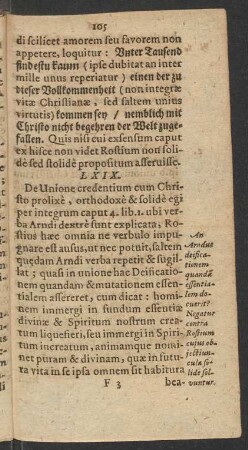 105
di scilicet amorem seu favorem non
appetere, loquitur: Vnter Tausend
findestu kaum (ipse dubitat an inter
mille unus reperiatur) einen der zu
dieser Vollkommenheit (non integræ
vitæ Christianæ, sed saltem unius
virtutis) kommen sey / nemblich mit
Christo nicht begehren der Welt zuge-
fallen. Quis nisi cui ex sensum caput
ex hisce non videt Rostium non soli-
dè sed stolidè propositum asseruisse.
LXIX.
De Unione credentium cum Chri-
sto prolixè, orthodoxè & solidè egi
per integrum caput 4. lib. 1. ubi ver-
ba Arndi dextrè sunt explicata, Ro-
stius hæc omnia ne verbulo impu-
gnare est ausus, ut nec potuit, saltem
quędam Arndi verba repetit & sugil-
lat; quasi in unione hac Deificatio-
nem quandam & mutationem essen-
tialem assereret, cum dicat: homi-
nem immergi in fundum essentiæ
divinæ & Spiritum nostrum crea-
tum liquefieri, seu immergi in Spiri-
tum increatum, animamque nomi-
net puram & divinam, quæ in futu-
ra vita in se ipsa omnem sit habitura
F 3 bea-
An
Arndus
deifica-
tionem
quandã
essentia-
lem do-
cuerit?
Negatur
contra
Rostium
cujus ob-
jectiun-
culæ so-
lidè sol-
vuntur.